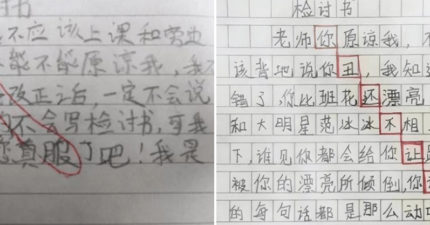 讨书
不应该上课和旁边
能不能原谅我,我
改正之后,一定不会说
的不会写检讨书,可我
真服了吧!我是
检讨书
老师你原谅我,
该背地说你丑,我知道
错了,你比班花还漂亮
和大明星范冰冰不相
下,谁见你都会给你让
被你的漂亮所倾倒,你
的每句话都是那么动